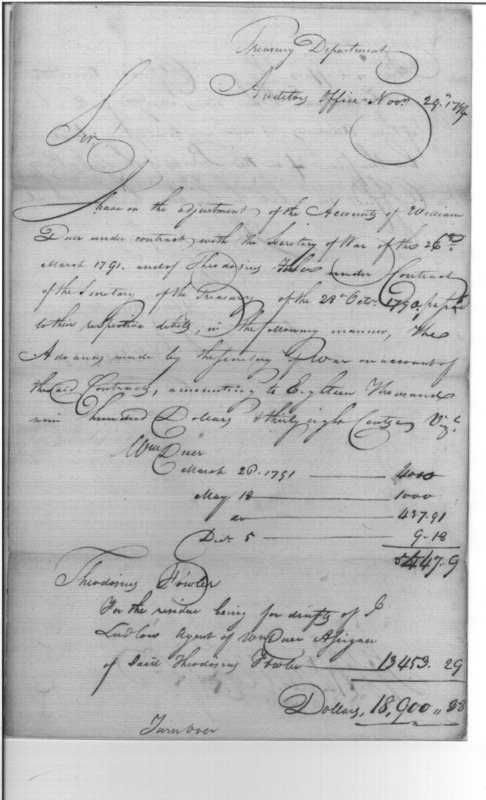 Treasury Department
Auditors Office Novr. 29th 1794
Sir,
I have on the adjustment of the Accounts of William
Duer under contract with the Secretary of War of the 26th
March 1791. and of Theodosius Fowler under Contract
of the Secretary of the Treasury of the 28th Octr. 1790,
to their respective debits, in the following manner, the
Advances made by the Secretary of War on account of
the said Contracts, amounting to Eighteen Thousand
nine hundred Dollars & thirty eight Cents, Vizt.
Wm Duer
March 26. 1791 4000
May 18 1000
do 437.91
Do 5 9.18
5447.9
Theodosius Fowler
For the residue being for drafts of J
Ludlow Agent of Wm Duer Assignee
of said Theodosius Fowler 13453.29
Dollars, 18,900,,38
Turn over